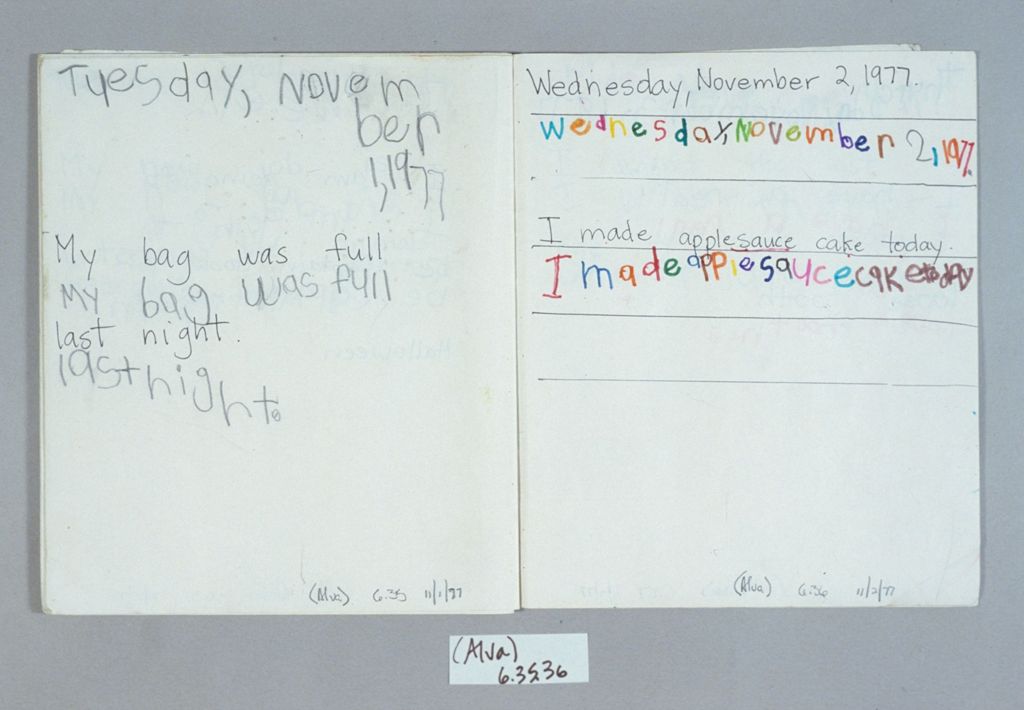 Tuesday, Novem
ber
1,1977
My bag was full
My bag was full
last night.
last night.
(Alva) 6.35 11/1/77
Wednesday, November 2, 1977.
Wednesday, November 2, 1977.
I made applesauce cake today.
I made applesauce cake today
(Alva) 6.36 11/2/77
(Alva)
6.35,36